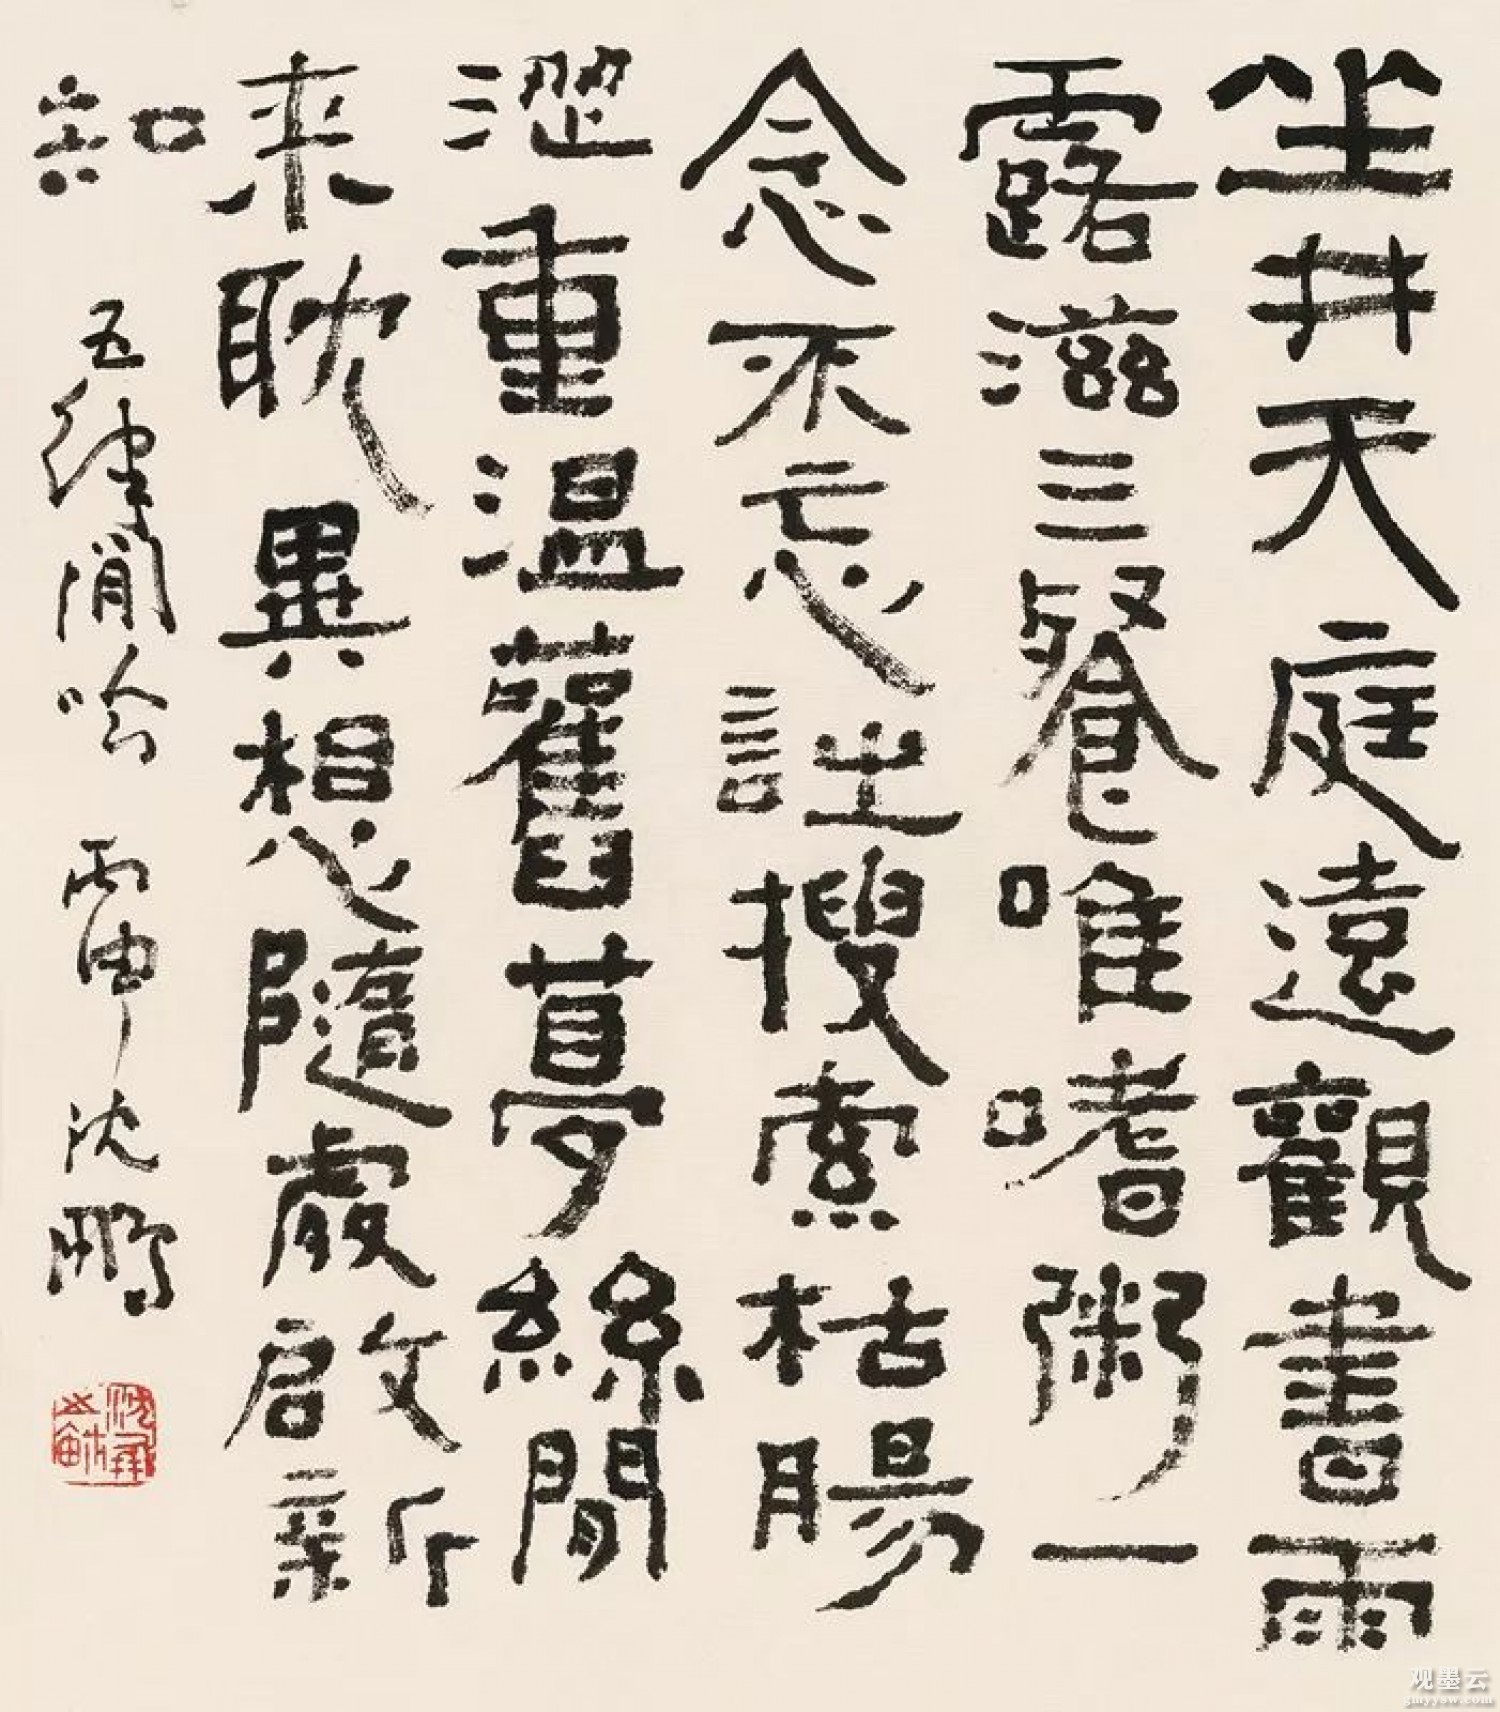 坐井天庭遠觀書雨
露滋三餐唯嗜粥一
念不忘詩搜索枯腸
澀重溫舊夢絲閒
来耽異想隨處啟新
知 五律閒吟 丙申 沈鵬
观墨云
gmyysw.com